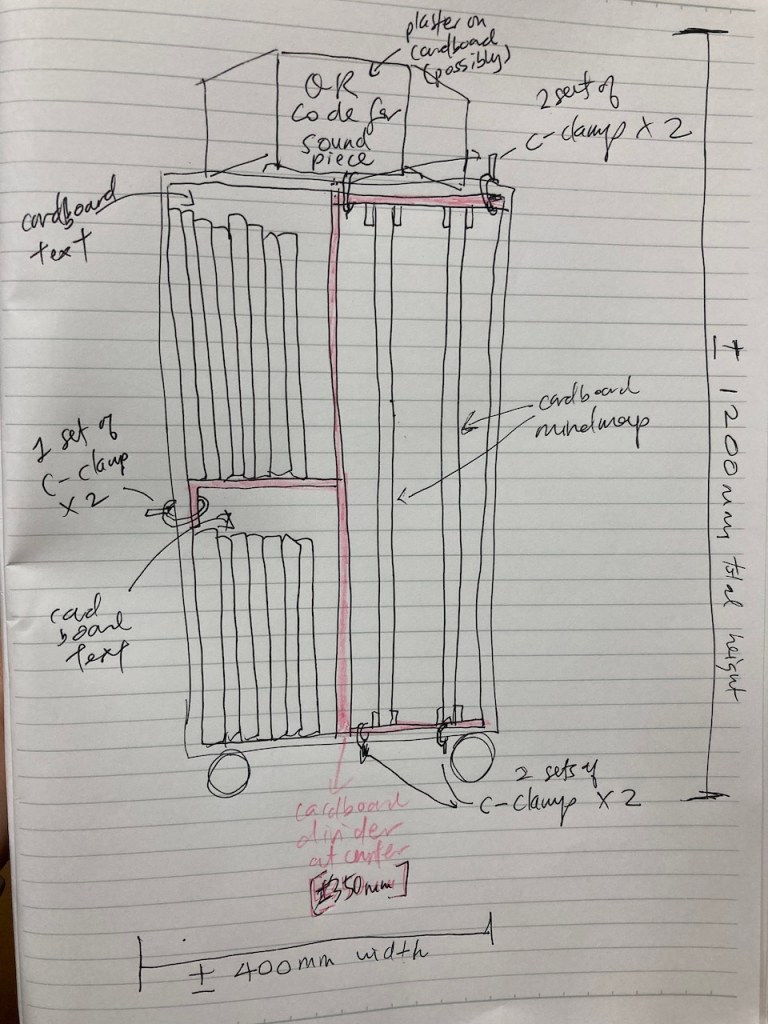 plaster on
cardboard
(possibly)
QR
code for
sound
piece
2 set of
C-clamp x 2
cardboard
text
cardboard
mindmap
1 set of
C-clamp
x 2
card
board
text
± 1200mm total height
2 sets of
C-clamp x 2
cardboard
divider
at center
[±350mm]
± 400mm width